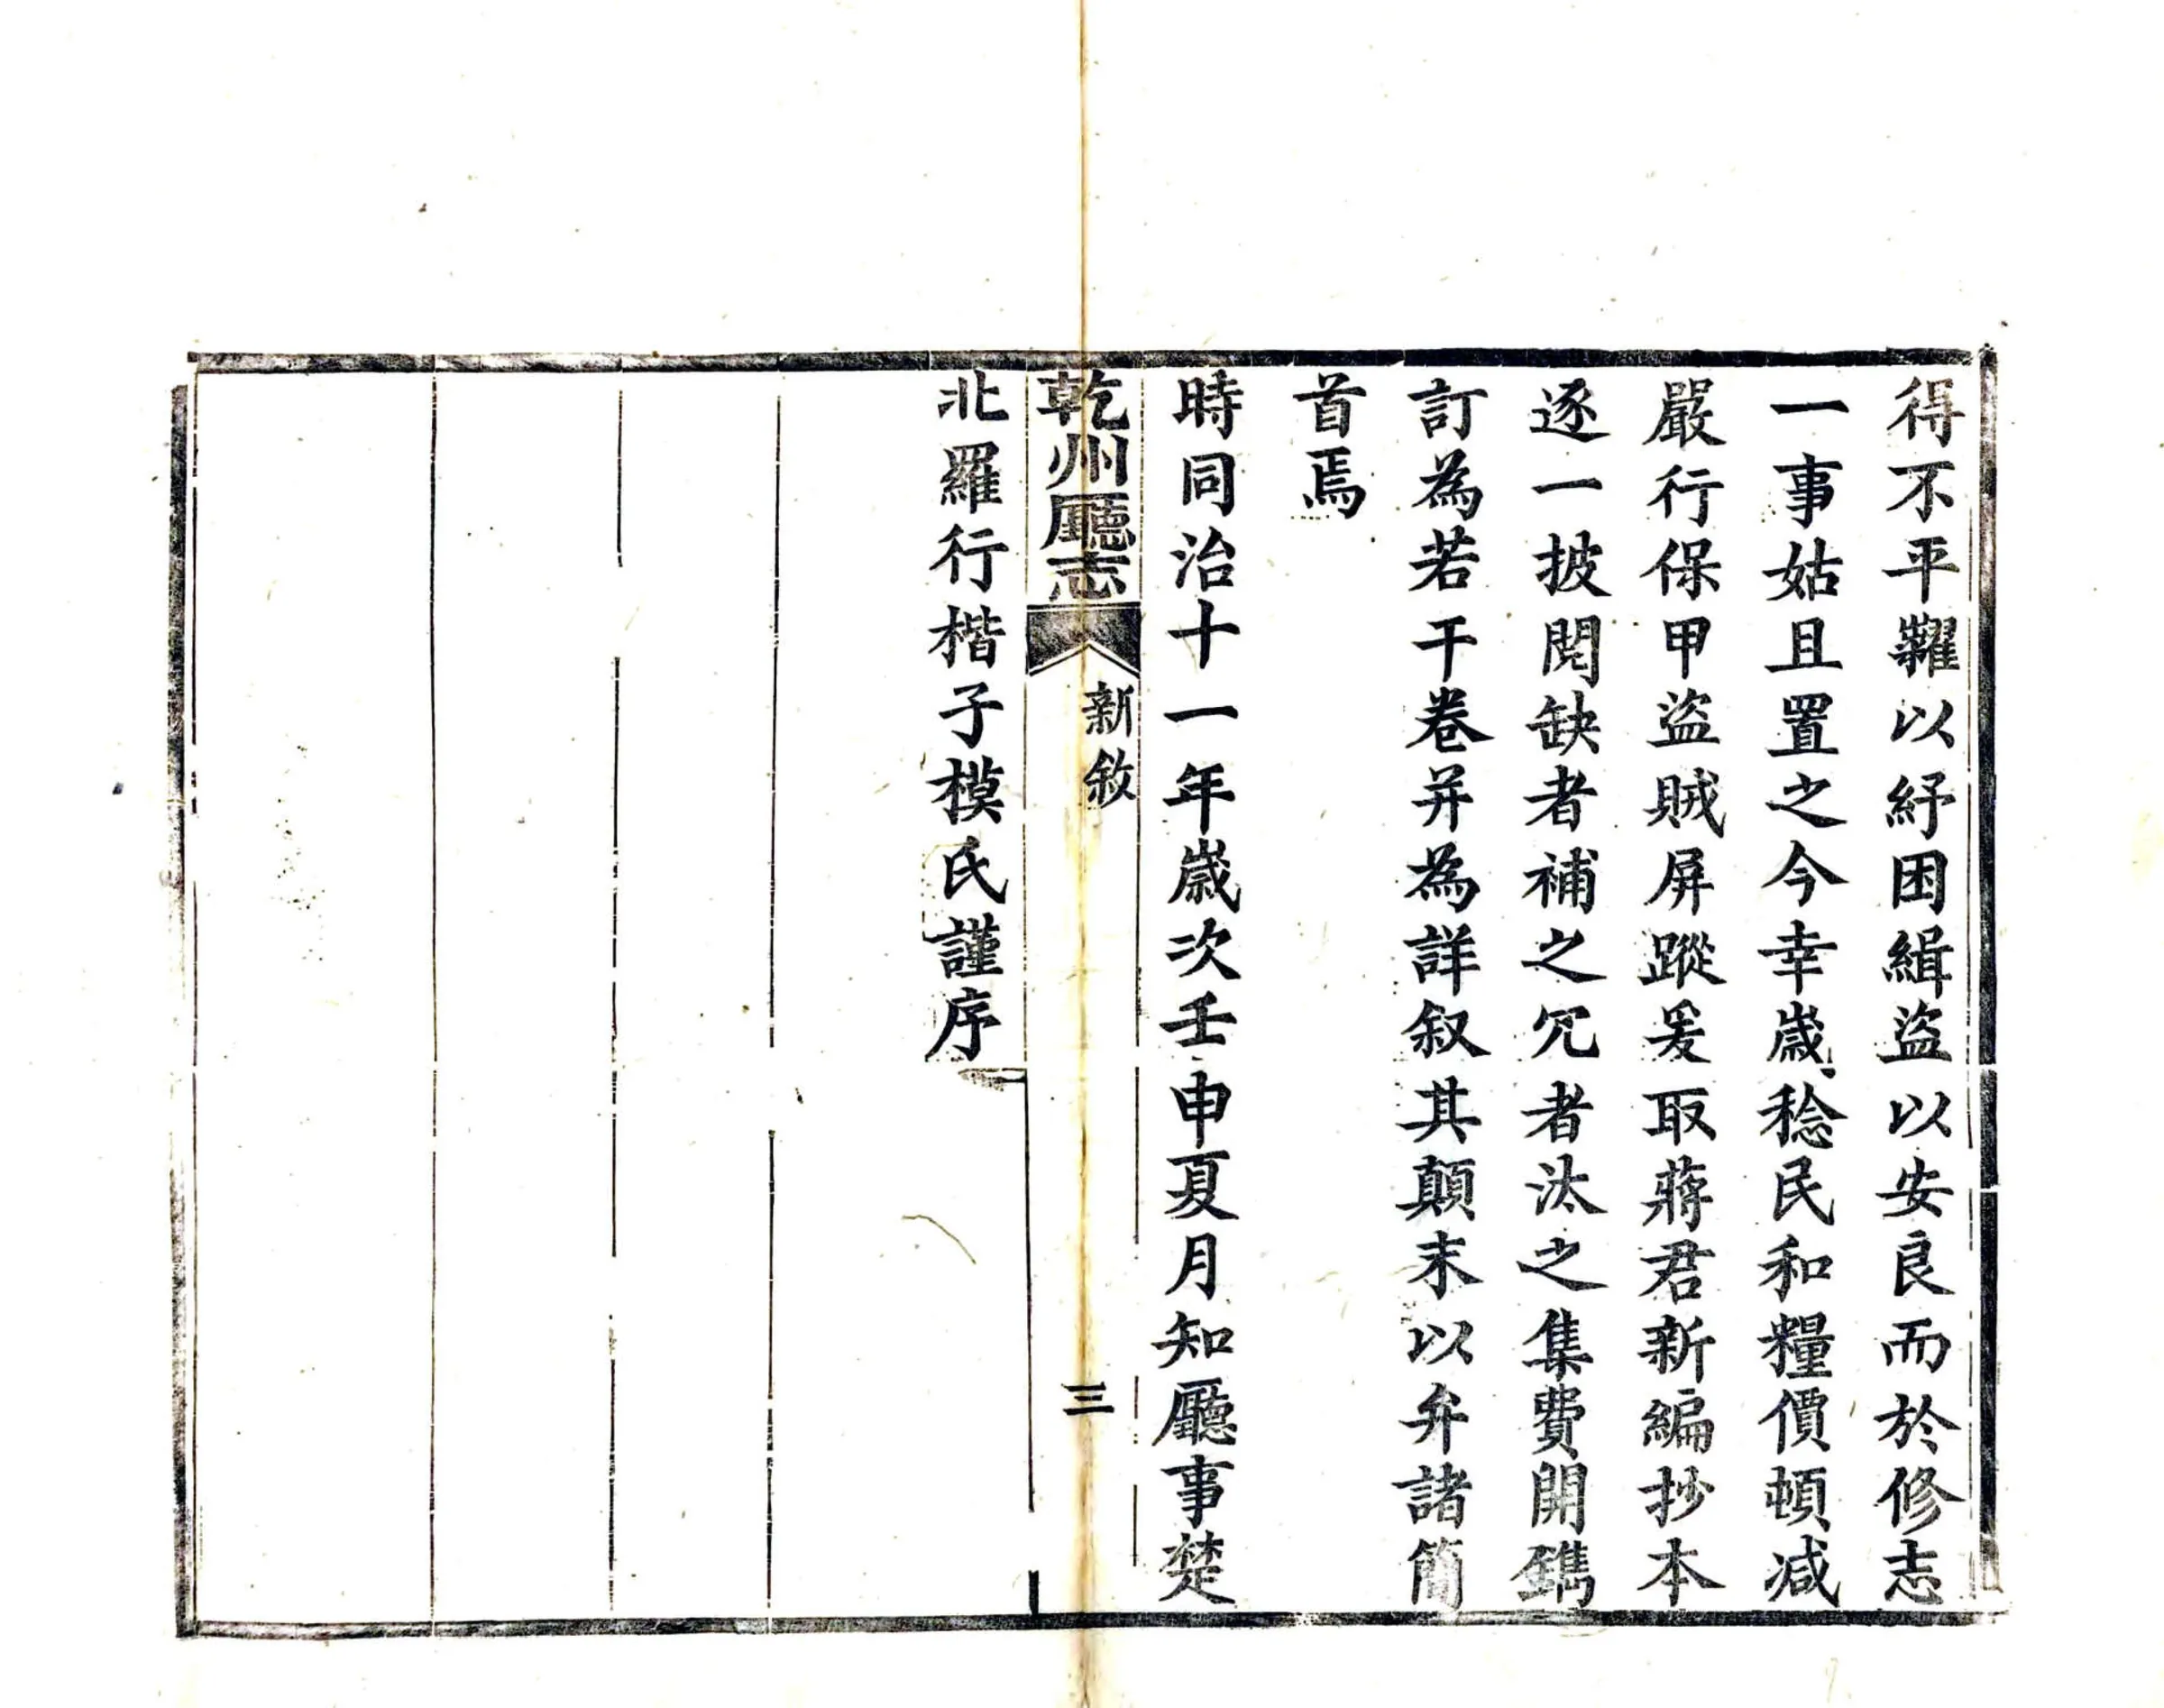 得不平糶以紓困緝盜以安良而於修志
一事姑且置之今幸歲稔民和糧價頓減
嚴行保甲盜賊屏蹤爰取蔣君新編抄本
逐一披閱缺者補之冗者汰之集費開鐫
訂為若干卷并為詳叙其顛末以弁諸簡
首焉
時同治十一年歲次壬申夏月知廳事楚
乾州廳志
新敘
三
北羅行楷子模氏謹序